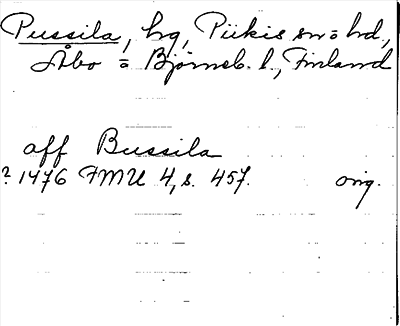 Pussila, hg, Piikis sn o hd,
Åbo = Björneb. l., Finland
aff Bussila
? 1476 FMU 4, s. 457. orig.